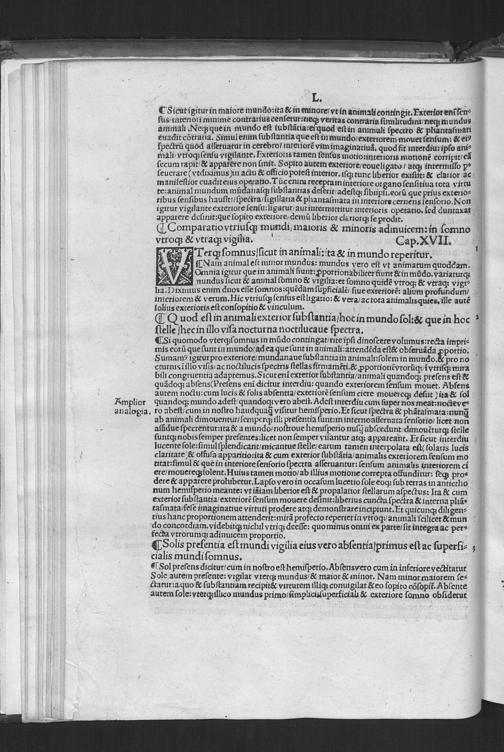 L.
¶ Sicut igitur in maiore mundo: ita & in minore: vt in animali contingit. Exterior eni͂ sen-
sus interiori minime contrarius censetur: neqʒ veritas contraria similitudini: neqʒ mundus
animali. Neqʒ que in mundo est substa͂tia: ei quod est in animali spectro & pha͂tasmati
euadit co͂traria. Simul enim substantia que est in mundo: exteriorem mouet sensum: & ei9
spectru͂ quod asseruatur in cerebro: interiore͂ vim imaginatiua͂. quod fit interdiu: ipso ani-
mali: vtroqʒ sensu vigilante. Exterioris tamen sensus motio: interioris motione͂ corripit: es
secum rapit: & apparere non sinit. Sopito autem exteriore: vel ligato: atqʒ intermisso p
seuerare (vt diximus) in actu & officio potest interior. isqʒ tunc liberior existit: & clarior ac
manifestior euadit eius operatio. Tu͂c enim receptam interiore organo sensitiua tota virtu
te: animal mundum mu͂danasqʒ substantias deserit: adestqʒ sibiipsi. eoru͂ que prius exterio-
ribus sensibus hausit: spectra sigillaria & phantasmata in interiore cernens sensorio. Non
igitur vigilante exteriore sensu: ligatur aut intermittitur interioris operatio. sed duntaxat
apparere desinit: que sopito exteriore: demu͂ liberior clariorqʒ se prodit.
¶ Comparatio vtriusqʒ mundi, maioris & minoris adinuicem: in somno
vtroqʒ & vtraqʒ vigilia. Cap. XVII.
VTerqʒ somnus: sicut in animali: ita & in mundo reperitur. 1
¶ Nam animal est minor mundus: mundus vero est vt animatum quodda͂m.
Omnia igitur que in animali fiunt: pportionabiliter fiunt & in mu͂do. variaturqʒ
mundus sicut & animal somno & vigilia: et somno quide͂ vtroqʒ: & vtraqʒ vigi-
lia. Diximus enim duos esse somnos: quenda͂m supficiale͂: siue exteriore͂: alium profundum:
interiorem & verum. Hic vtriusqʒ sensus est ligatio: & vera: ac tota animalis quies. ille aute͂
solius exterioris est consopitio & vinculum.
¶ Quod est in animali exterior substantia: hoc in mundo sol: & que in hoc 2
stelle: hec in illo visa nocturna noctilucaue spectra.
¶ Si quomodo vterqʒ somnus in mu͂do contingat: rite ipsi dinoscere volumus: recta impri-
mis eoru͂ que sunt in mundo: ad ea que sunt in animali: attende͂da est & obserua͂da pportio.
Suma͂tur igitur pro exteriore mundanaue substantia in animali: solem in mundo. & pro no
cturnis illo visis: ac noctilucis spectris stellas firmame͂ti. & pportione͂ vtroru͂qʒ: vtrisqʒ mira
bili congruentia adaptemus. Sicut eni͂ exterior substantia: animali quandoqʒ presens est &
qua͂doqʒ absens. Presens eni͂ dicitur interdiu: quando exteriorem sensum mouet. Absens
autem noctu: cum lucis & solis absentia: exteriore͂ sensum ciere mouereqʒ desinit: ita & sol
Amplior analogia.
quandoqʒ mundo adest: quandoqʒ vero abest. Adest interdiu cum super nos meat: nocte ve-
ro abest: cum in nostro haudquaqua͂ visitur hemisperio. Et sicut spectra & pha͂tasmata: nunq͂
ab animali dimouentur: semperqʒ illi presentia sunt: in interno asseruata sensorio: licet non
assidue spectentur: ita & a mundo: nostroue hemisperio nusqʒ abscedunt: dimoue͂turqʒ stelle
suntqʒ nobis semper presentes: licet non semper visantur atqʒ appareant. Et sicut interdiu
lucente solaris luminis presentia: simul splendicant stelle: earum tamen interpolata est: solis
claritate: & offusa apparitio: ita & cum exterior substa͂tia: animalis exteriorem sensum mo
titat: simul & que in interiore sensorio spectra asseruantur: sensum animalis interiorem ci
ere: mouereqʒ solent. Huius tamen motio: ab illius motione correpta offunditur: seqʒ pro-
dere & apparere prohibetur. Lapso vero in occasum lucetio sole: eoqʒ sub terras in antictho
num hemisperio meante: vt etiam liberior est & propalatior stellarum aspectus: Ita & cum
exterior substantia: exteriorem sensum mouere desinit: liberius cuncta spectra & interna pha͂-
tasmata: sese imaginatiue virtuti prodere atqʒ demonstrare incipiunt. Et quicunqʒ diligen-
tius hanc proportionem attenderit: mira͂ profecto reperiet in vtroqʒ: animali scilicet & mun
do concordiam. videbitqʒ nichil vtriqʒ deesse: quo minus omni ex parte: sit integra ac per-
fecta vtrorumqʒ adinuicem proportio.
¶ Solis presentia est mundi vigilia: eius vero absentia: primus est ac superfi- 3
cialis mundi somnus.
¶ Sol presens dicitur: cum in nostro est hemisperio. Absens vero cum in inferiore vectitatur
Sole autem presente: vigilat vterqʒ mundus: & maior & minor. Nam minor maiorem se-
ctatur: a quo & substantiam recipit: & virtutem illiqʒ conuigilat & eo sopito co͂sopit͂. Absente
autem sole: vterqʒ illico mundus primo: simplici: superficiali & exteriore somno obsidetur